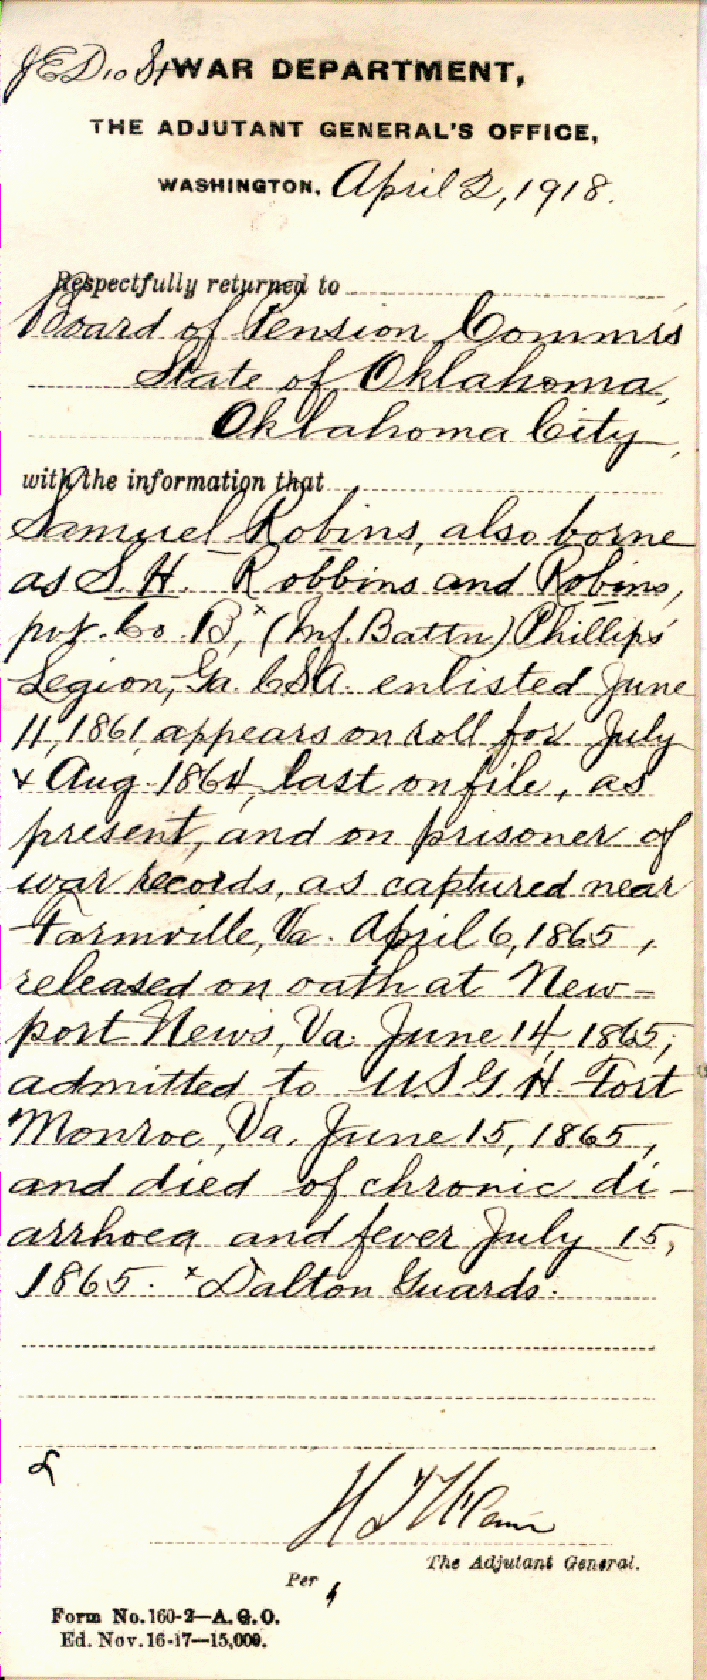 WAR DEPARTMENT,
THE ADJUTANT GENERAL'S OFFICE,
WASHINGTON, April 2, 1918.
Respectfully returned to
Board of Pension Commrs
State of Oklahoma,
Oklahoma City,
with the information that
Samuel Robins, also borne
as S. H. Robbins and Robins,
pvt. Co. B,ˣ (Inf. Battn) Phillips'
Legion, Ga. CSA. enlisted June
11, 1861, appears on roll for July
& Aug. 1864, last on file, as
present, and on prisoner of
war records, as captured near
Farmville, Va. April 6, 1865,
released on oath at New-
port News, Va. June 14, 1865;
admitted to U.S.G.H. Fort
Monroe, Va. June 15, 1865,
and died of chronic di-
arrhoea and fever July 15,
1865. ˣDalton Guards.
The Adjutant General.
Per
Form No. 160-2—A.G.O.
Ed. Nov. 16-17—15,000.